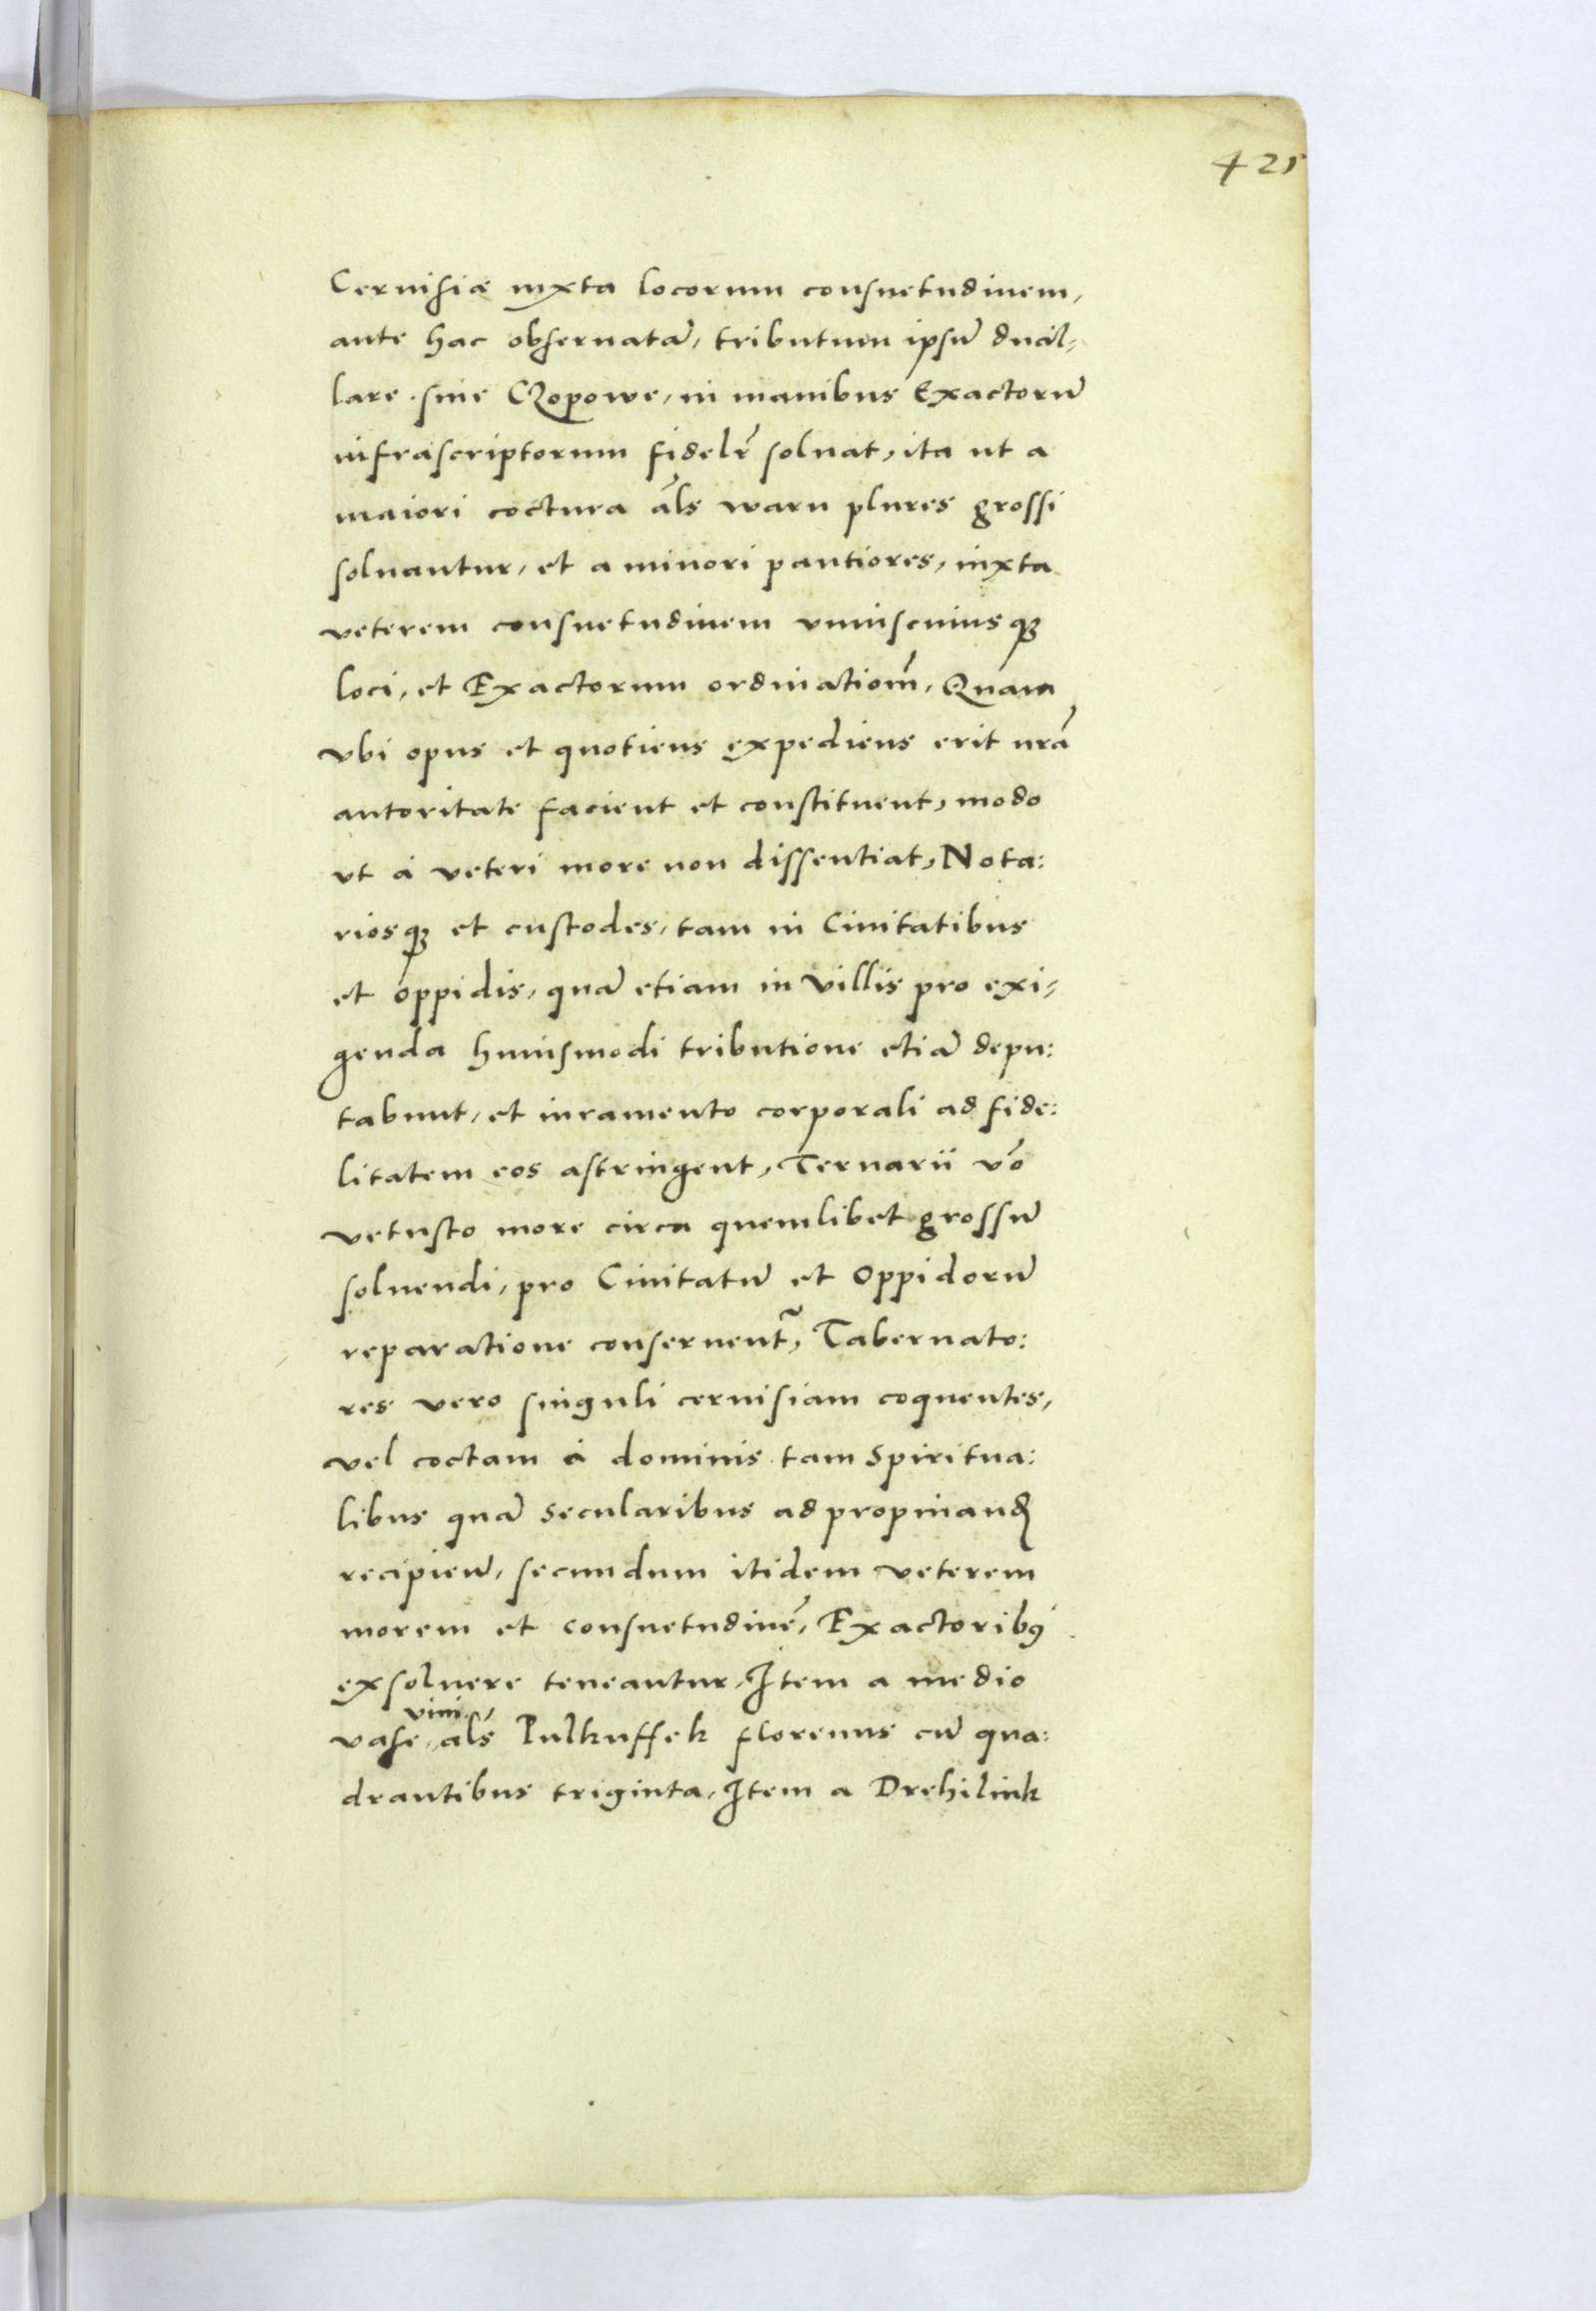 421
Ceruisiæ iuxta locorum consuetudinem,
ante hac obseruatā, tributum ipsū ducil-
lare. siue CZopowe, in manibus Exactorū
infrascriptorum fidelr̃ soluat, ita ut a
maiori coctura al̃s waru plures grossi
soluantur, et a minori pautiores, iuxta
veterem consuetudinem vniuscuiusqꝫ
loci, et Exactorum ordinatiom̃, Quam
vbi opus et quotiens expediens erit nrã
autoritate facient et constituent, modo
vt à veteri more non dissentiat, Nota:
riosqꝫ et custodes, tam in Ciuitatibus
et oppidis, quā etiam in villis pro exi-
genda huiusmodi tributione etiā depu:
tabunt, et iuramento corporali ad fide:
litatem eos astringent, Ternarii vo᷃
vetusto more circa quemlibet grossū
soluendi, pro Ciuitatū et Oppidorū
reparatione conseruent᷑, Tabernato:
res vero singuli ceruisiam coquentes,
vel coctam à dominis tam spiritua:
libus quā secularibus ad propinanđ
recipieñ, secundum itidem veterem
morem et consuetudinẽ, Exactoribꝰ
exsoluere teneantur, Item a medio
vini
vase, al̃s Pulkuffek florenus cū qua:
drantibus triginta, Item a Drehilink